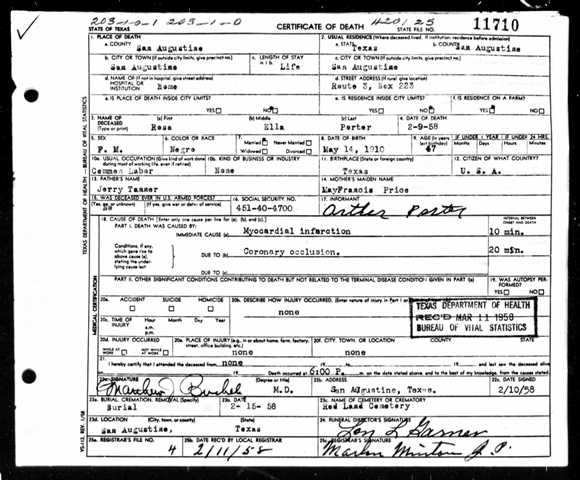 203-10-1 203-1-0
420.1 25
STATE OF TEXAS CERTIFICATE OF DEATH 11710
1. PLACE OF DEATH 2. USUAL RESIDENCE (Where deceased lived. If institution: residence before admission)
a. COUNTY San Augustine a. STATE Texas b. COUNTY San Augustine
b. CITY OR TOWN (If outside city limits, give precinct no.) c. LENGTH OF STAY c. CITY OR TOWN (If outside city limits, give precinct no.)
San Augustine Life San Augustine
d. NAME OF (If not in hospital, give street address) d. STREET ADDRESS (If rural, give location)
HOSPITAL OR INSTITUTION Home Route 3, Box 223
e. IS PLACE OF DEATH INSIDE CITY LIMITS? e. IS RESIDENCE INSIDE CITY LIMITS? f. IS RESIDENCE ON A FARM?
YES NO YES NO YES NO
3. NAME OF DECEASED (a) First (b) Middle (c) Last 4. DATE OF DEATH
(Type or print) Rosa Ella Porter 2-9-58
5. SEX 6. COLOR OR RACE 7. Married Never Married 8. DATE OF BIRTH 9. AGE (In years last birthday) IF UNDER 1 YEAR IF UNDER 24 HRS.
Widowed Divorced Months Days Hours Minutes
F. M. Negro May 14, 1910 47
10a. USUAL OCCUPATION (Give kind of work done during most of working life, even if retired) 10b. KIND OF BUSINESS OR INDUSTRY 11. BIRTHPLACE (State or foreign country) 12. CITIZEN OF WHAT COUNTRY?
Common Labor None Texas U. S. A.
13. FATHER'S NAME 14. MOTHER'S MAIDEN NAME
Jerry Tanner MayFrancis Price
15. WAS DECEASED EVER IN U.S. ARMED FORCES? 16. SOCIAL SECURITY NO. 17. INFORMANT
(If yes, give war or dates of service) 451-40-4700 Arthur Porter
18. CAUSE OF DEATH [Enter only one cause per line for (a), (b), and (c).] INTERVAL BETWEEN ONSET AND DEATH
PART I. DEATH WAS CAUSED BY:
IMMEDIATE CAUSE (a) Myocardial infarction 10 min.
Conditions, if any, which gave rise to above cause (a), stating the underlying cause last
DUE TO (b) Coronary occlusion. 20 min.
DUE TO (c)
PART II. OTHER SIGNIFICANT CONDITIONS CONTRIBUTING TO DEATH BUT NOT RELATED TO THE TERMINAL DISEASE CONDITION GIVEN IN PART I(a) 19. WAS AUTOPSY PERFORMED?
YES NO
20a. ACCIDENT SUICIDE HOMICIDE 20b. DESCRIBE HOW INJURY OCCURRED. (Enter nature of injury in Part I
none
TEXAS DEPARTMENT OF HEALTH
REC'D MAR 11 1958
BUREAU OF VITAL STATISTICS
20c. TIME OF INJURY Hour Month Day Year
a.m.
p.m.
20d. INJURY OCCURRED 20e. PLACE OF INJURY (e.g., in or about home, farm, factory, street, office building, etc.) 20f. CITY, TOWN, OR LOCATION
WHILE AT WORK NOT WHILE AT WORK none none
21. I hereby certify that I attended the deceased from none
Death occurred at 6:00 P. m. on the date stated above, and to the best of my knowledge, from the causes stated.
22a. SIGNATURE (Degree or title) 22b. ADDRESS 22c. DATE SIGNED
M.D. San Augustine, Texas. 2/10/58
23a. BURIAL, CREMATION, REMOVAL (Specify) 23b. DATE 23c. NAME OF CEMETERY OR CREMATORY
Burial 2-15-58 Red Land Cemetery
23d. LOCATION (City, town, or county) (State) 24. FUNERAL DIRECTOR'S SIGNATURE
San Augustine, Texas
25a. REGISTRAR'S FILE NO. 25b. DATE REC'D BY LOCAL REGISTRAR 25c. REGISTRAR'S SIGNATURE
4 2/11/58 Marlon Minton J. P.
TEXAS DEPARTMENT OF HEALTH - BUREAU OF VITAL STATISTICS
MEDICAL CERTIFICATION